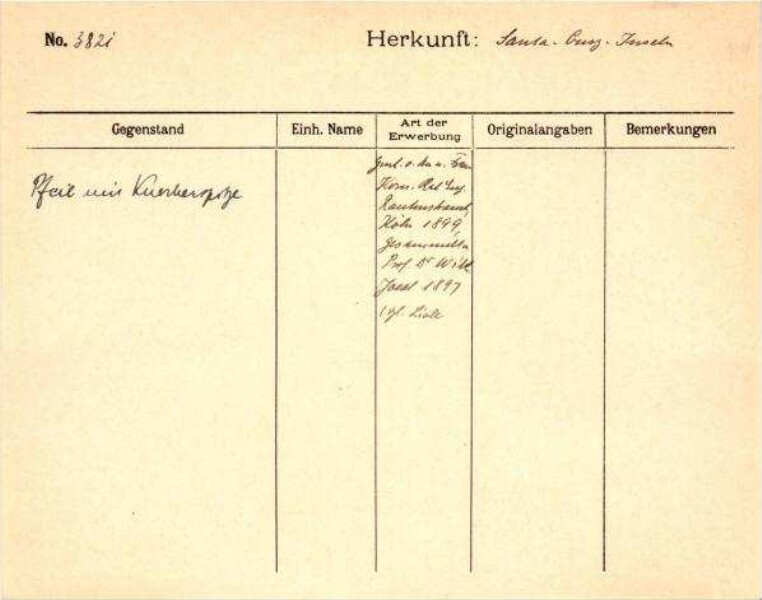 No. 382i
Herkunft: Santa-Cruz-Inseln
Gegenstand
Einh. Name
Art der Erwerbung
Originalangaben
Bemerkungen
Pfeil mit Knochenspitze
Gesch. v. Hrn u. Frau
Kom. Rat Eug.
Rautenstrauch,
Köln 1899,
gesammelt v.
Prof. Dr Wilh.
Joest 1897